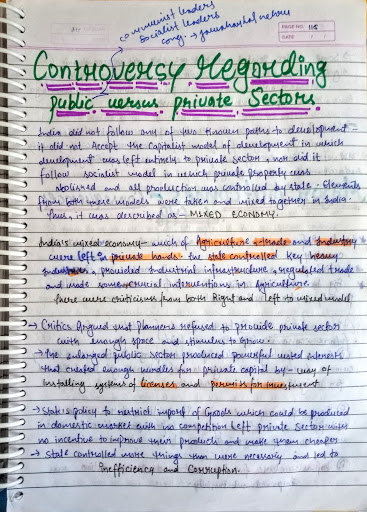 communist leaders
socialist leaders
cong → Jawaharlal nehru
PAGE NO. 115
DATE
Controversy Regarding
public versus private Sectors
India did not follow any of two known paths to development -
it did not Accept the capitalist model of development in which
development was left entirely to private sector, nor did it
follow socialist model in which private property was
abolised and all production was controlled by state. Elements
from both these models were taken and mixed together in India.
Thus, it was described as - MIXED ECONOMY.
India's mixed economy - much of Agriculture, trade and Industry
were left in private hands. the state controlled key heavy
Industries, provided Industrial infrastructure, regulated trade
and made some crucial interventions in Agriculture.
there were criticisms from both Right and left to mixed model
→ Critics Argued that planners refused to provide private sector
with enough space and stimulus to grow.
→ The enlarged public sector produced powerful vested interests
that created enough hurdles for private capital by - way of
Installing systems of licenses and permits for investment
→ State's policy to restrict import of Goods which could be produced
in domestic market with no competition left private Sector with
no incentive to improve their products and make them cheaper
→ State controlled more things than were necessary and led to
Inefficiency and Corruption.